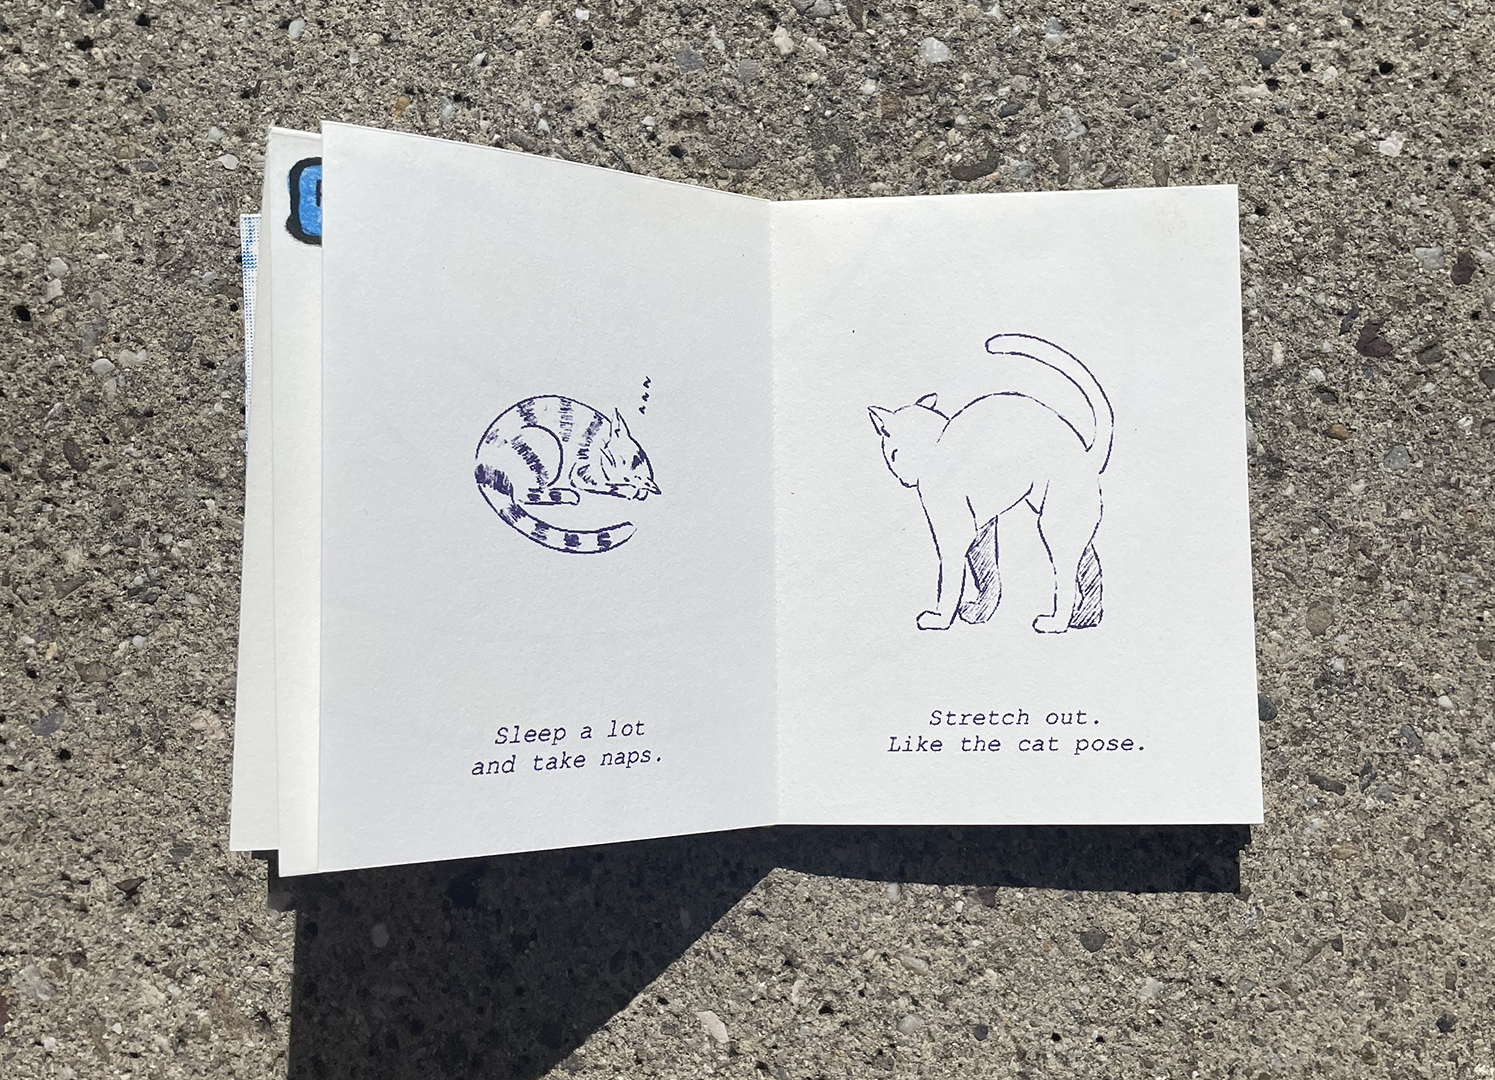 zzz
Sleep a lot
and take naps.
Stretch out.
Like the cat pose.